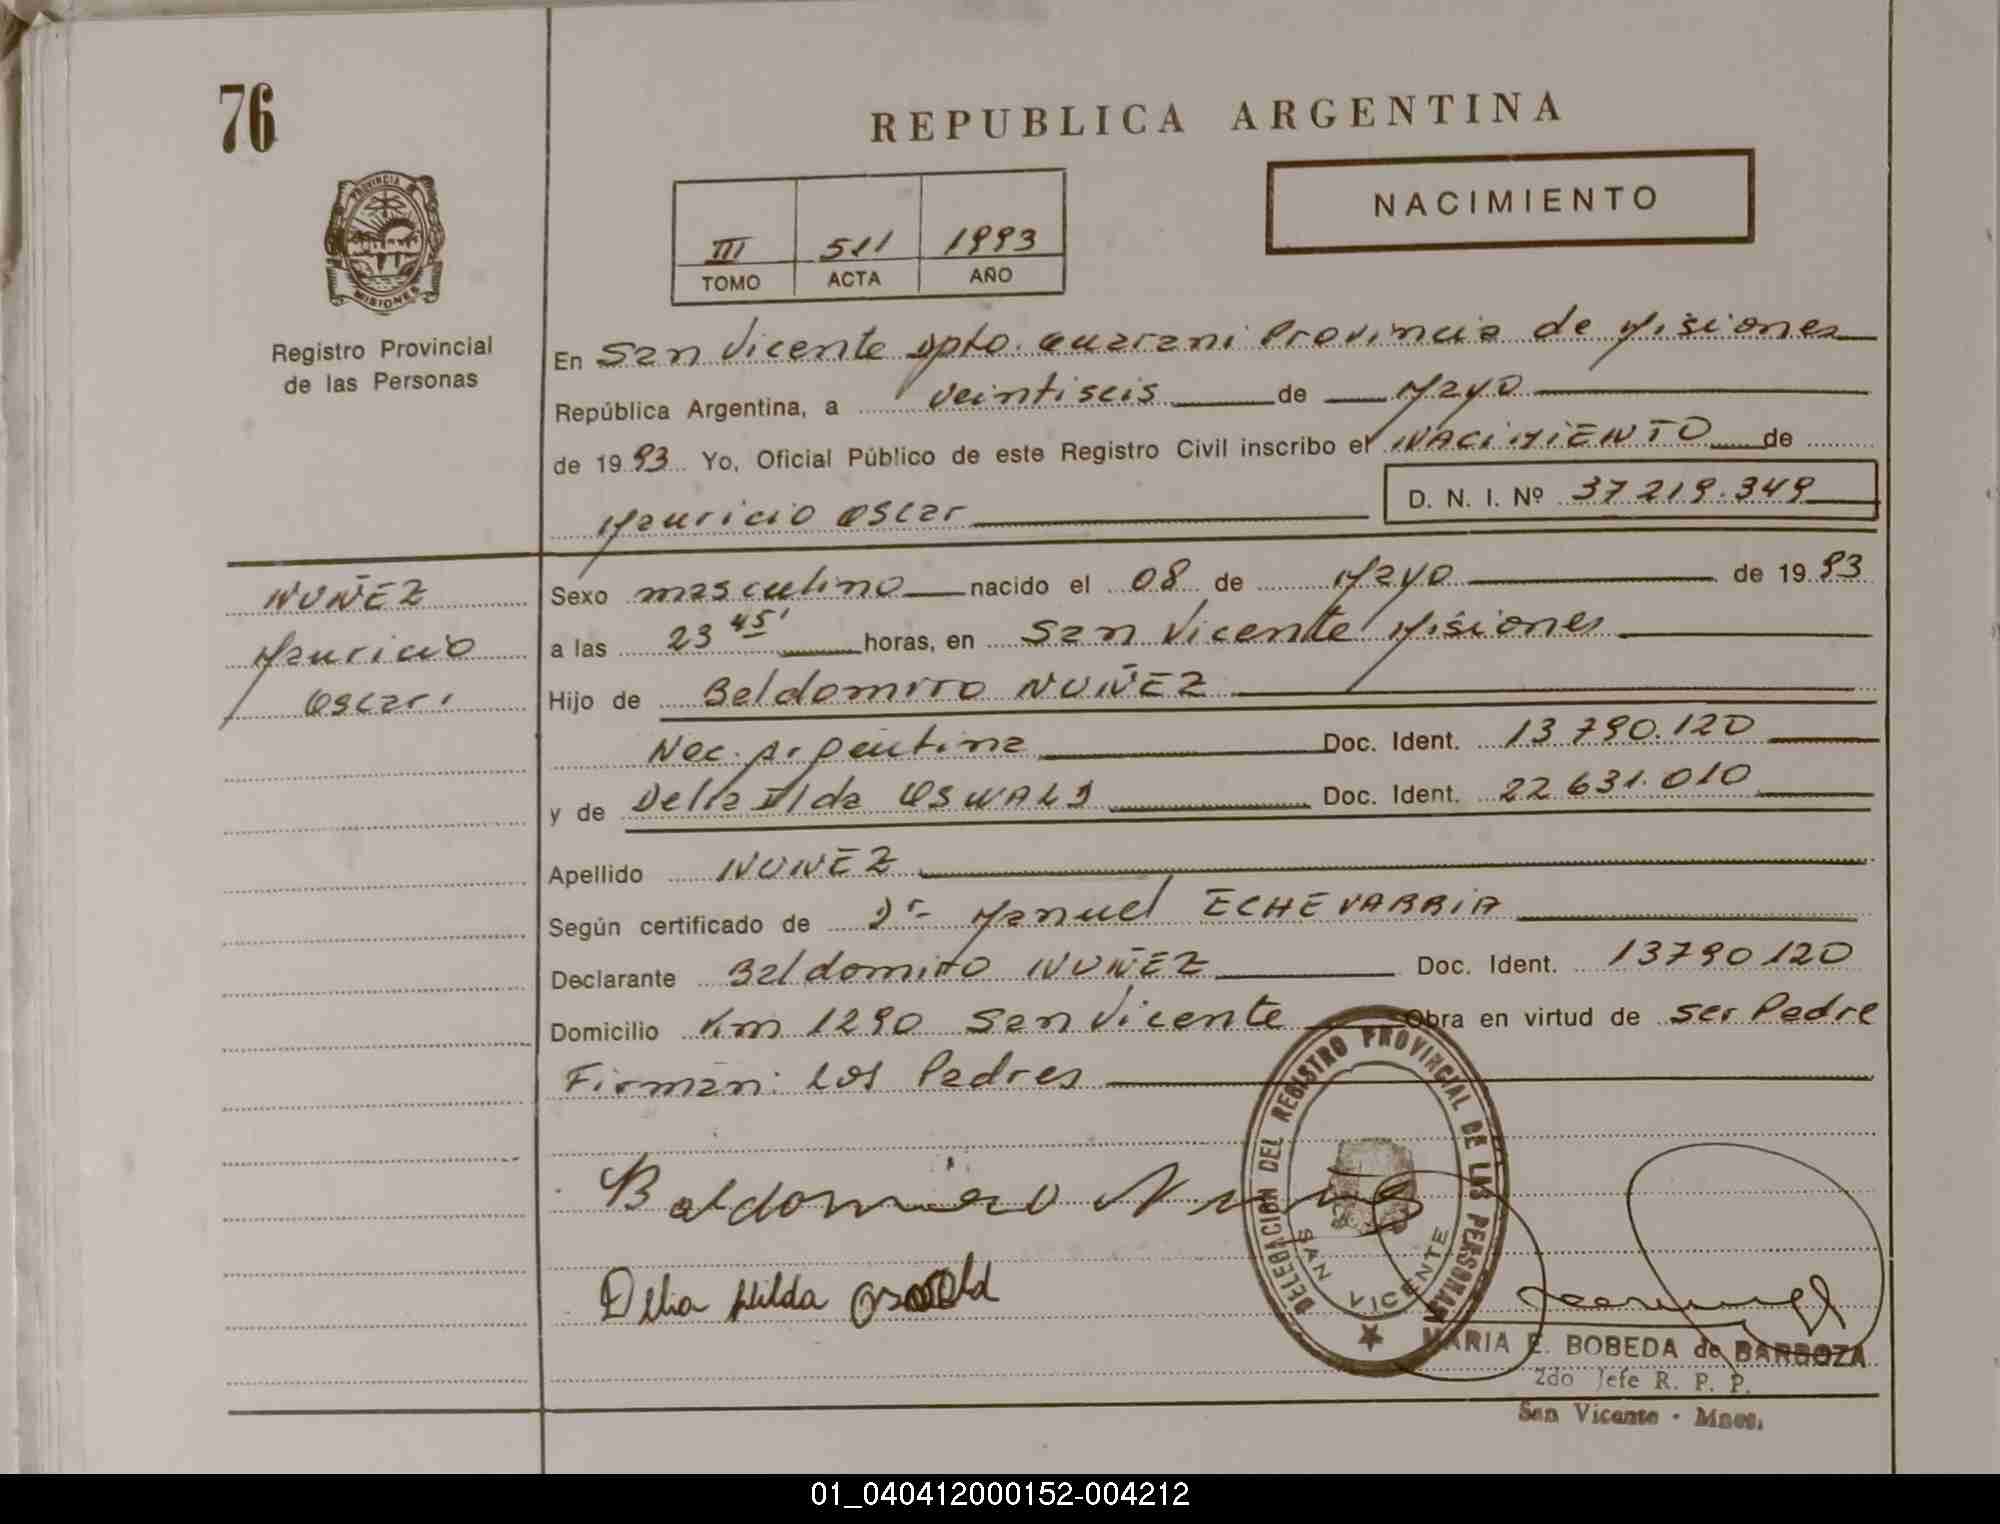 76
REPUBLICA ARGENTINA
NACIMIENTO
III 511 1993
TOMO ACTA AÑO
PROVINCIA DE
MISIONES
Registro Provincial
de las Personas
En San Vicente Dpto. Guarani Provincia de Misiones
República Argentina, a veintiseis de Mayo
de 1993 Yo, Oficial Público de este Registro Civil inscribo el NACIMIENTO de
Mauricio Oscar D. N. I. Nº 37 219.349
NUÑEZ
Mauricio
Oscar
Sexo masculino nacido el 08 de Mayo de 1993
a las 23 45' horas, en San Vicente Misiones
Hijo de Baldomiro NUÑEZ
Nac. Argentina Doc. Ident. 13 790.120
y de Delia Ilda OSWALD Doc. Ident. 22 631.010
Apellido NUÑEZ
Según certificado de Dr. Manuel ECHEVARRIA
Declarante Baldomiro NUÑEZ Doc. Ident. 13790120
Domicilio Km 1290 San Vicente Obra en virtud de ser Padre
Firman: Los Padres
Baldomiro
Delia Hilda
DELEGACION DEL REGISTRO PROVINCIAL DE LAS PERSONAS
SAN VICENTE
MARIA E. BOBEDA de BARBOZA
2do Jefe R. P. P.
San Vicente - Mnes.
01_040412000152-004212